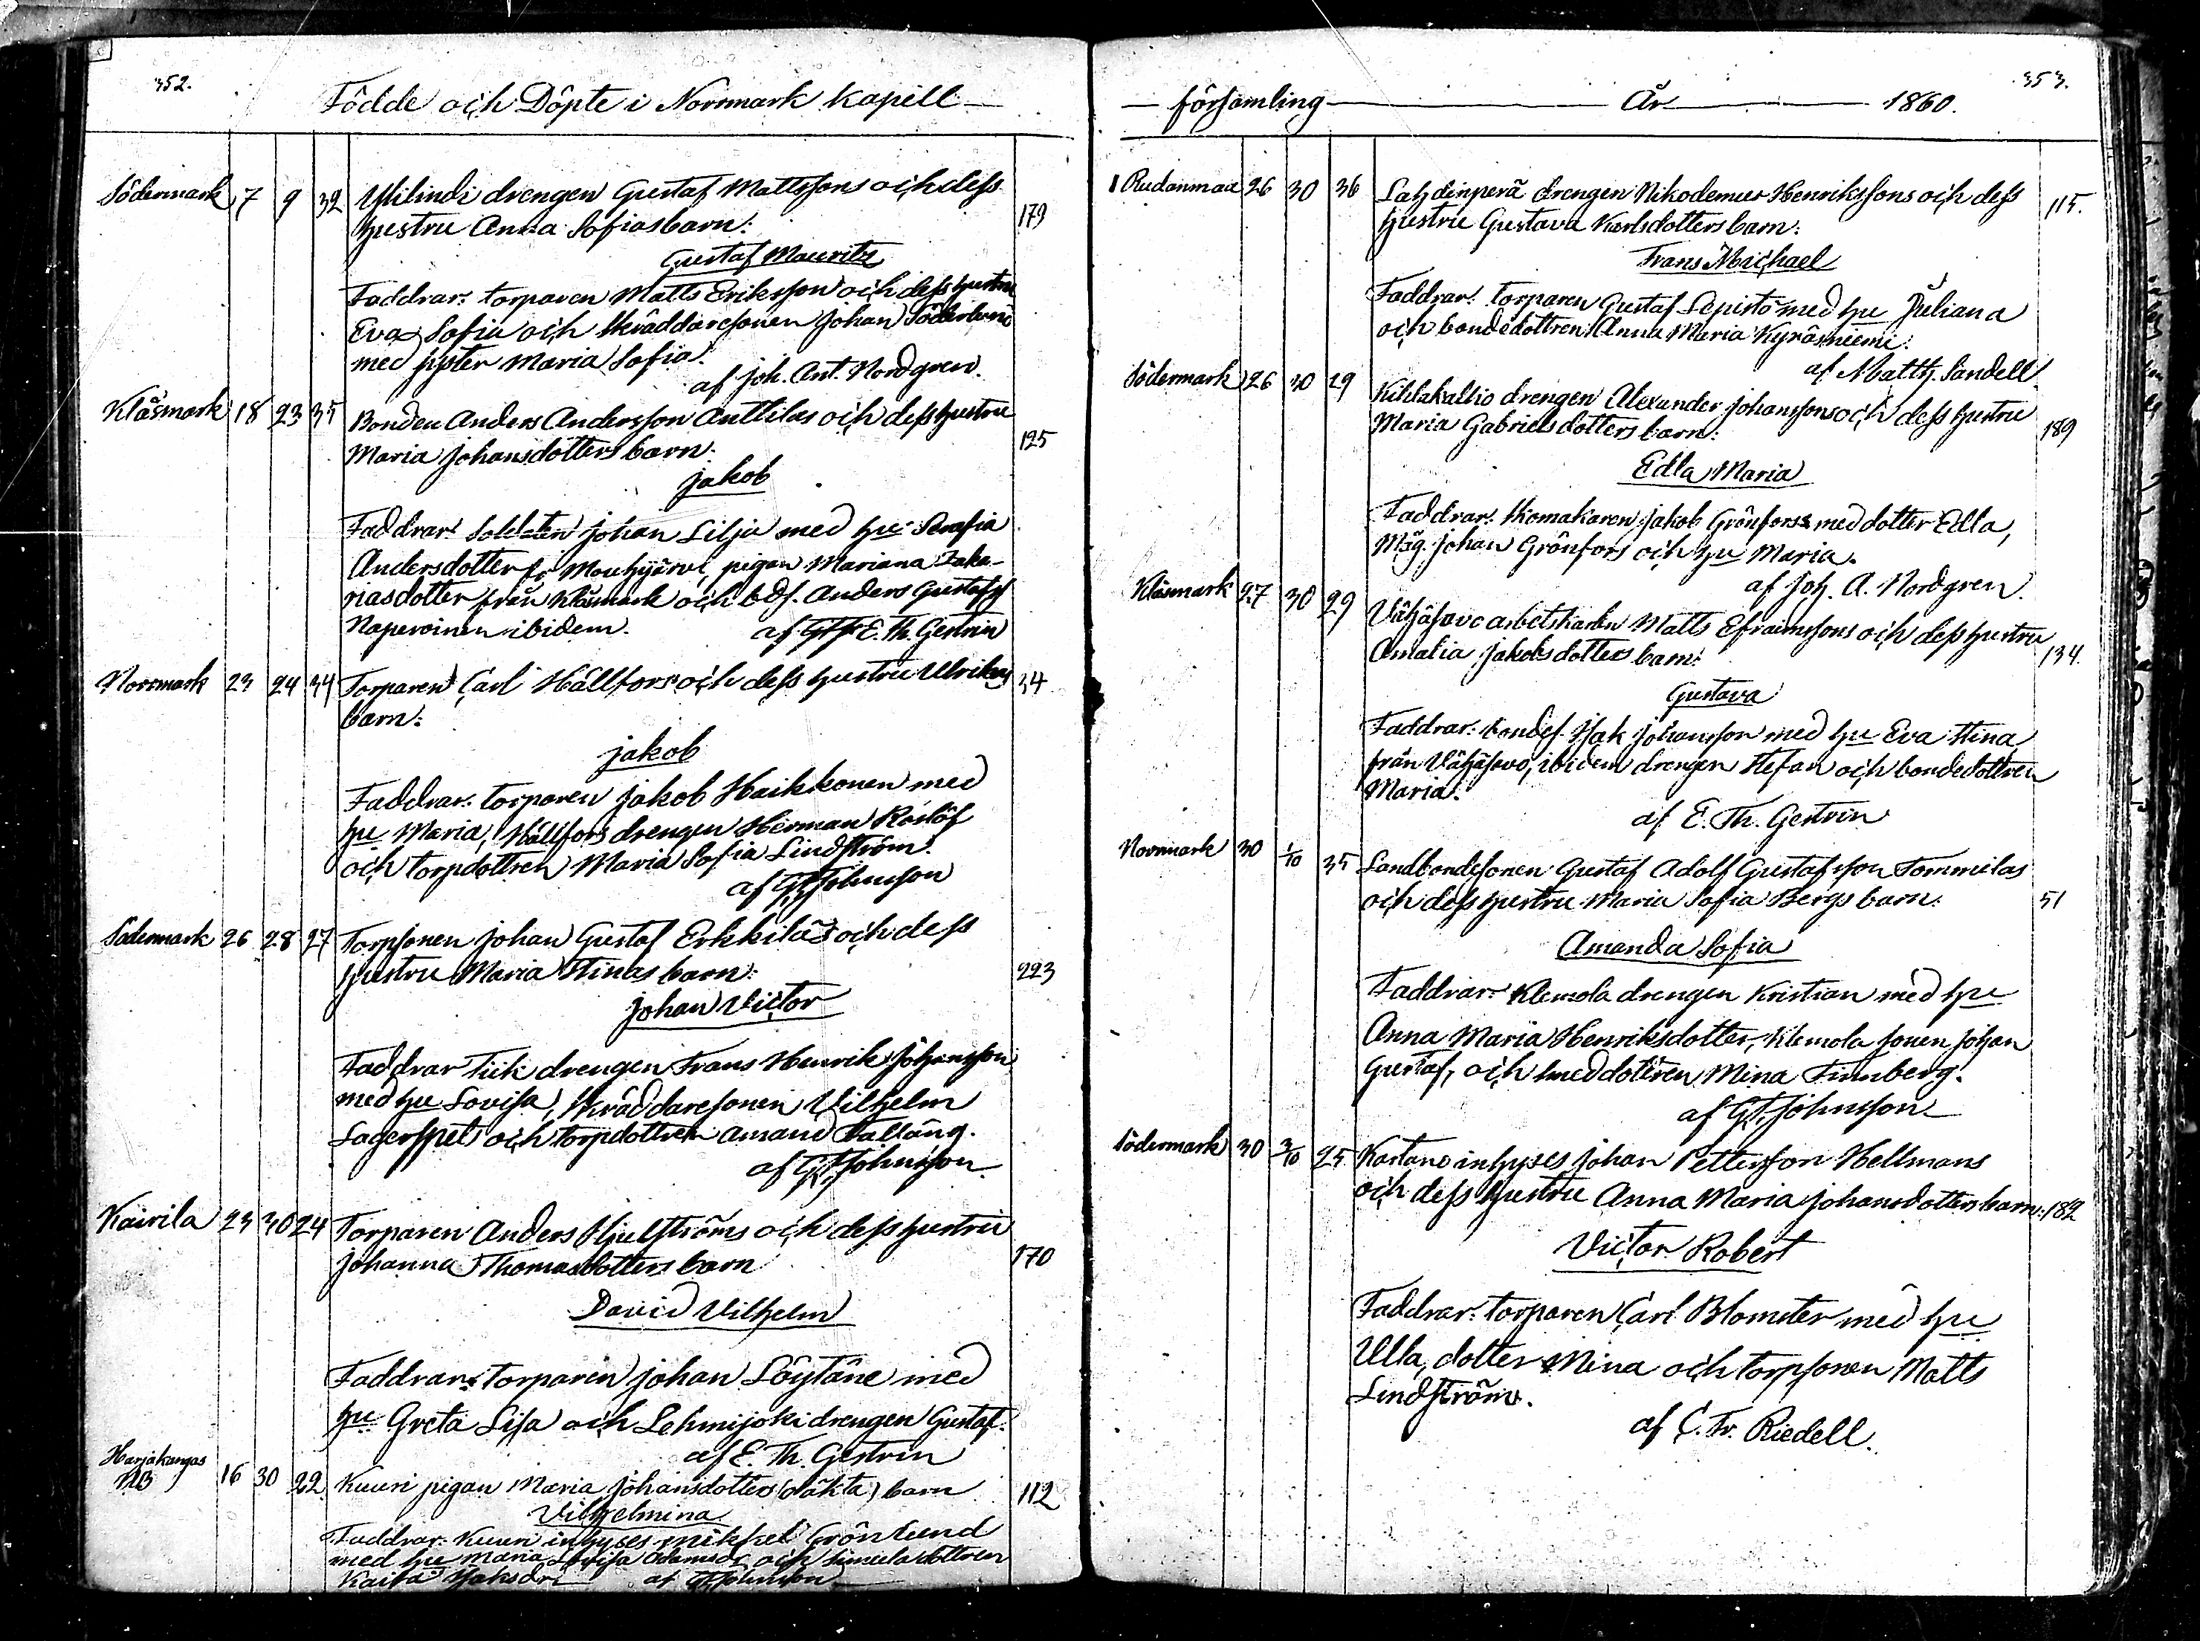 352.
Födde och Döpte i Norrmark kapell
Södermark 7 9 32 Ylilindi drengen Gustaf Mattssons och dess 179
hustru Anna Sofias barn:
Gustaf Mauritz
Faddrar: torparen Matts Eriksson och dess hustru
Eva Sofia och skräddaresonen Johan
med syster Maria Sofia.
af Joh. Ant. Nordgren.
Klåsmark 18 23 35 Bonden Anders Andersson Anttilas och dess hustru 125
Maria Johansdotters barn:
Jakob
Faddrar: Soldaten Johan Lilja med hu Serafia
Andersdotter fr Mouhijärvi, pigan Mariana Zaka-
riasdotter från Klåsmark och bds. Anders Gustafss
ibidem. af E. Th. Gestrin
Norrmark 23 24 34 Torparen Carl Hällfors och dess hustru Ulrikas 34
barn:
Jakob
Faddrar: torparen Jakob Haikkonen med
hu Maria, Hällfors drengen Herman
och torpdottren Maria Sofia Lindström.
af Johnsson
Södermark 26 28 27 Torpsonen Johan Gustaf Erkkiläs och dess 223
hustru Maria Stinas barn:
Johan Victor
Faddrar Tiik drengen Frans Henrik Johansson
med hu Lovisa, skräddaresonen Vilhelm
Lagerspets och torpdottren Amand
af Johnsson
Kairila 23 30 24 Torparen Anders Hjulströms och dess hustru 170
Johanna Thomasdotters barn
David Vilhelm
Faddrar: torparen Johan Löytäne med
hu Greta Lisa och Lehmijoki drengen Gustaf.
af E. Th. Gestrin
Harjakangas
NB 16 30 22 Kuuri pigan Maria Johansdotters (oäkta) barn 112
Vilhelmina
Faddrar: Kuuri inhyses Mikkel Grönlund
med hu Maria Lovisa Adamsdr och Simula dottren
Kaisa Isaksdr af Johnsson
353.
församling År 1860.
Rudanmaa 26 30 36 Lahdenperä drengen Nikodemus Henrikssons och dess 115.
hustru Gustava Karlsdotters barn:
Frans Michael
Faddrar: torparen Gustaf Lepistö med hu Juliana
och bondedottren Anna Maria Kyräsniemi.
af Matth. Sandell.
Södermark 26 30 29 Kihlakallio drengen Alexander Johanssons och dess hustru 189
Maria Gabrielsdotters barn:
Edla Maria
Faddrar: Skomakaren Jakob Grönfors med dotter Edla,
Måg. Johan Grönfors och hu Maria.
af Joh. A. Nordgren.
Klåsmark 27 30 29 Vähäsavo arbetskarln Matts Efraimssons och dess hustru 134.
Amalia Jakobsdotters barn:
Gustava
Faddrar: bondes. Isak Johansson med hu Eva Stina
från Vähäsavo, ibidem drengen Stefan och bondedottren
Maria.
af E. Th. Gestrin
Norrmark 30 1/10 35 Landbondesonen Gustaf Adolf Gustafsson Tommilas 51
och dess hustru Maria Sofia Bergs barn:
Amanda Sofia
Faddrar: Klemola drengen Kristian med hu
Anna Maria Henriksdotter, Klemola sonen Johan
Gustaf, och smeddottren Mina Finnberg.
af Johnsson
Södermark 30 3/10 25 Kartano inhyses Johan Pettersson Hellmans
och dess hustru Anna Maria Johansdotters barn: 182
Victor Robert
Faddrar: torparen Carl Blomster med hu
Ulla, dotter Mina och torpsonen Matts
Lindström.
af C. Fr. Riedell.